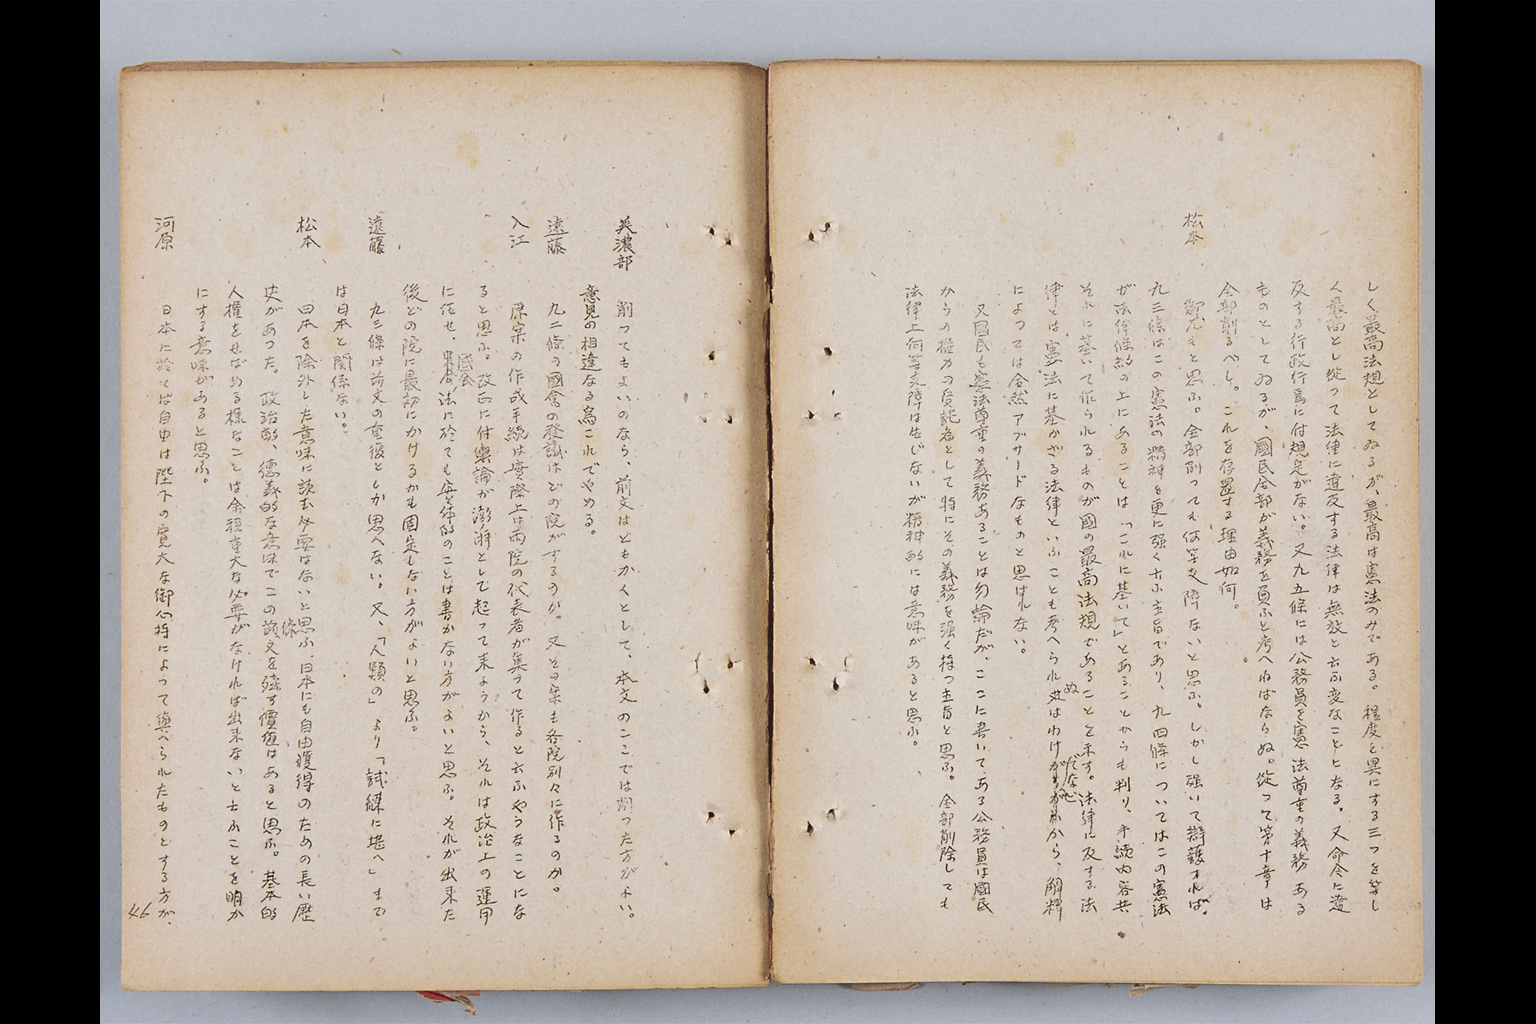 しく最高法規としてゐるが、最高は憲法のみである。程度を異にする三つを等し
く最高とし従つて法律に違反する法律は無效と云ふ変なことゝなる。又命令に違
反する行政行爲に付規定がない。又九五條には公務員を憲法尊重の義務ある
ものとしてゐるが、國民全部が義務を負ふと考へねばならぬ。從つて第十章は
全部削るべし。これを存置する理由如何。
松本 御尤もと思ふ。全部削つても何等支障ないと思ふ。しかし强いて辯護すれば。
九三條はこの憲法の精神を更に强く云ふ主旨であり、九四條についてはこの憲法
が法律條約の上にあることは「これに基いて」とあることからも判り、手續内容共
それに基いて作られるものが國の最高法規であることを示す。法律に反する法
律とは憲法に基かざる法律といふことも考へられぬわけだから、解釋
によつては全然アブサードなものと思はれない。
又國民も憲法尊重の義務あることは勿論だが、ここに書いてある公務員は國民
からの權力の受託者として特にその義務を强く持つ主旨と思ふ。全部削除しても
法律上何等支障は生じないが精神的には意味があると思ふ。
美濃部 削つてもよいのなら、前文はともかくとして、本文のここでは削つた方がよい。
意見の相違なる爲これでやめる。
遠藤 九二條の國會の發議はどの院がするのか。又その案も各院別々に作るのか。
入江 原案の作成手續は實際上は兩院の代表者が集つて作ると云ふやうなことにな
ると思ふ。改正に付輿論が澎湃として起つて来ようから、それは政治上の運用
に任せ、國会法に於ても具体的のことは書かない方がよいと思ふ。それが出来た
後どの院に最初にかけるかも固定しない方がよいと思ふ。
遠藤 九三條は前文の重複としか思へない。又、「人類の」より「試練に堪へ」まで
は日本と関係ない。
松本 日本を除外した意味に読む必要はないと思ふ、日本にも自由獲得のための長い歴
史があつた。政治的、德義的な意味でこの條文を殘す價値はあると思ふ。基本的
人權をせばめる樣なことは余程重大な必要がなければ出来ないと云ふことを明か
にする意味があると思ふ。
河原 日本に於ては自由は陛下の寛大な御心持によつて與へられたものとする方が、
46